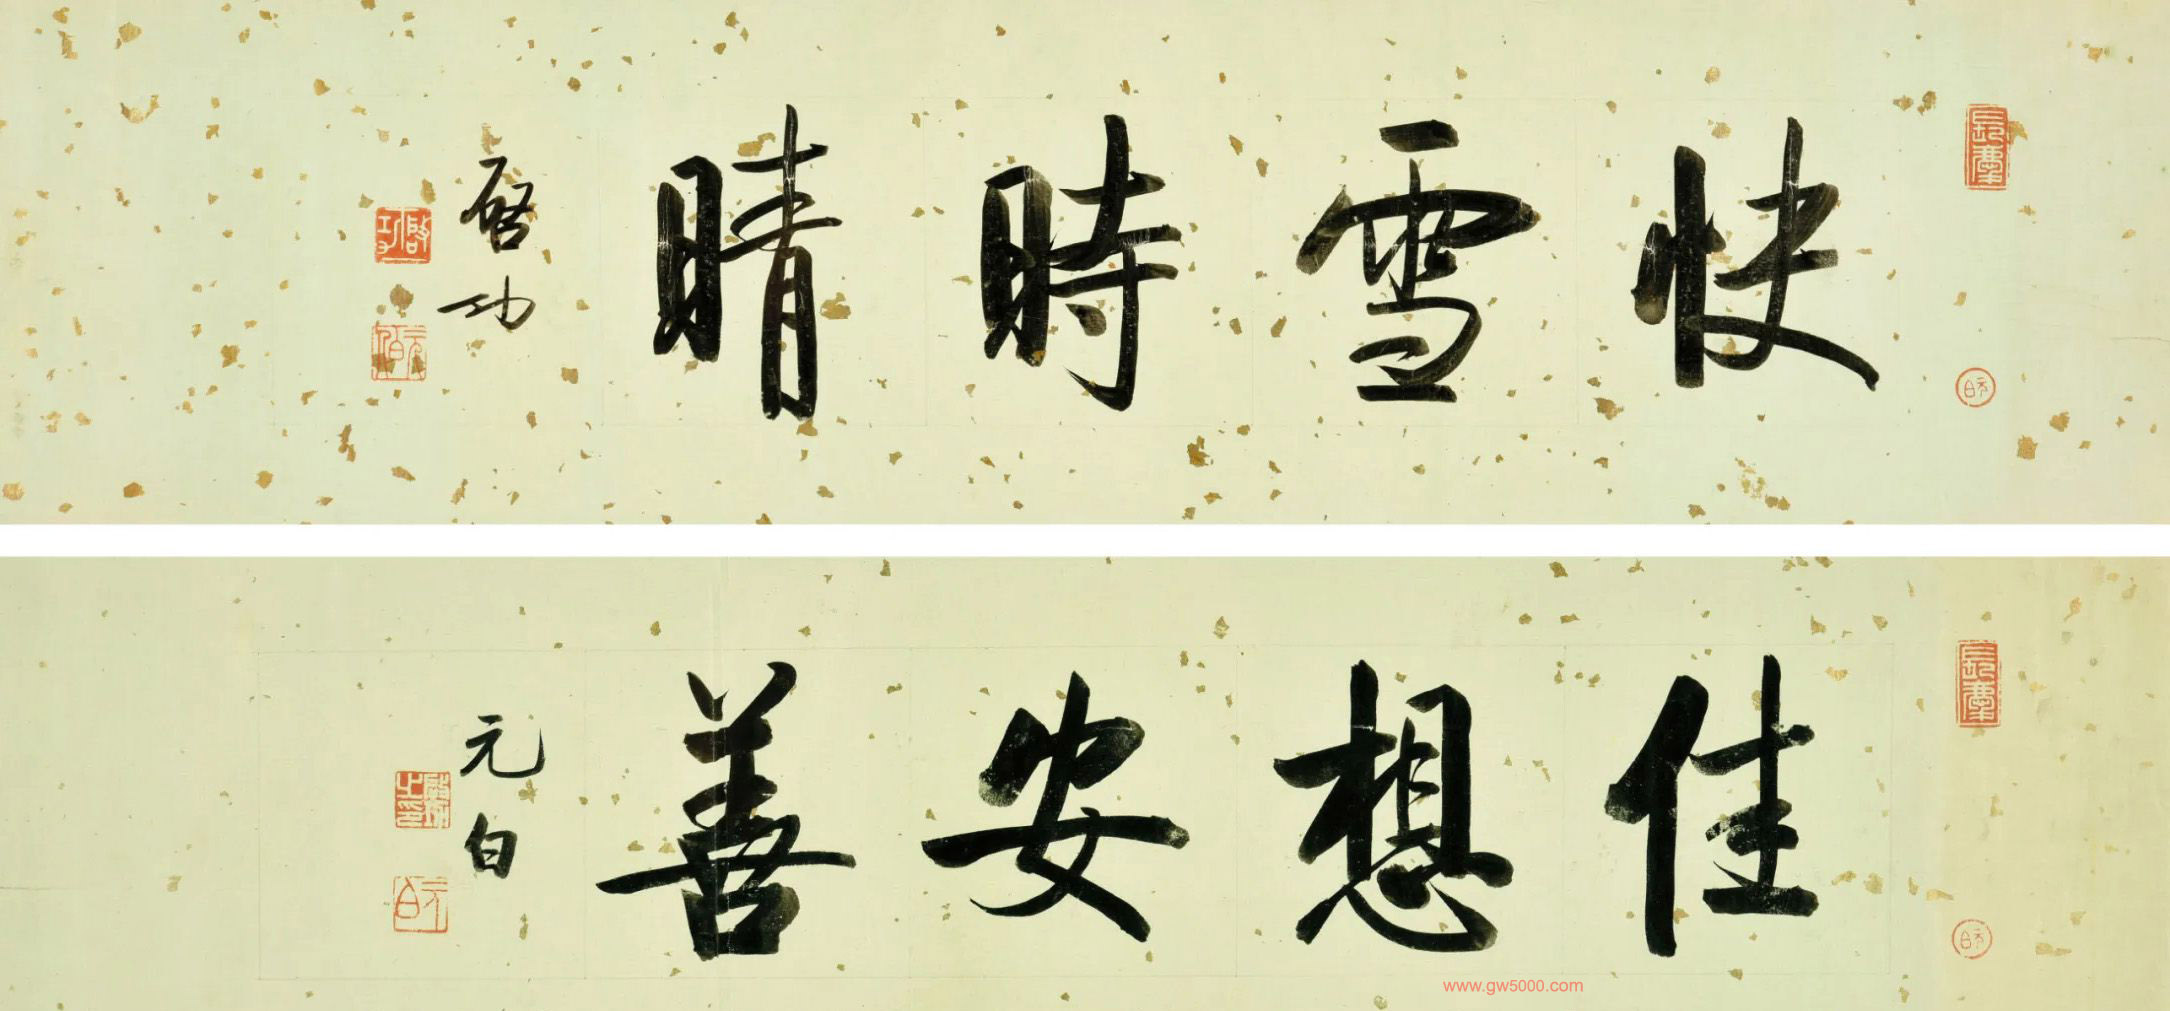 快雪時晴
啓功
佳想安善
元白
www.gw5000.com